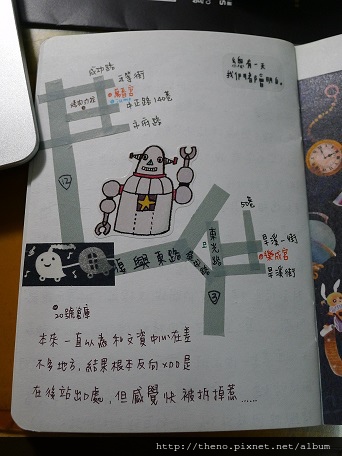 總有一天
我們會會明白。
成功路
平等街
萬春宮
中正路140巷
市府路
12
復興東路
東光路
50巷
旱溪一街
樂成宮
旱溪街
3
20號倉庫
本來一直以為和文資中心在差
不多地方,結果根本反向XDD是
在後站出口處,但感覺快被拆掉惹......
http://theno.pixnet.net/album